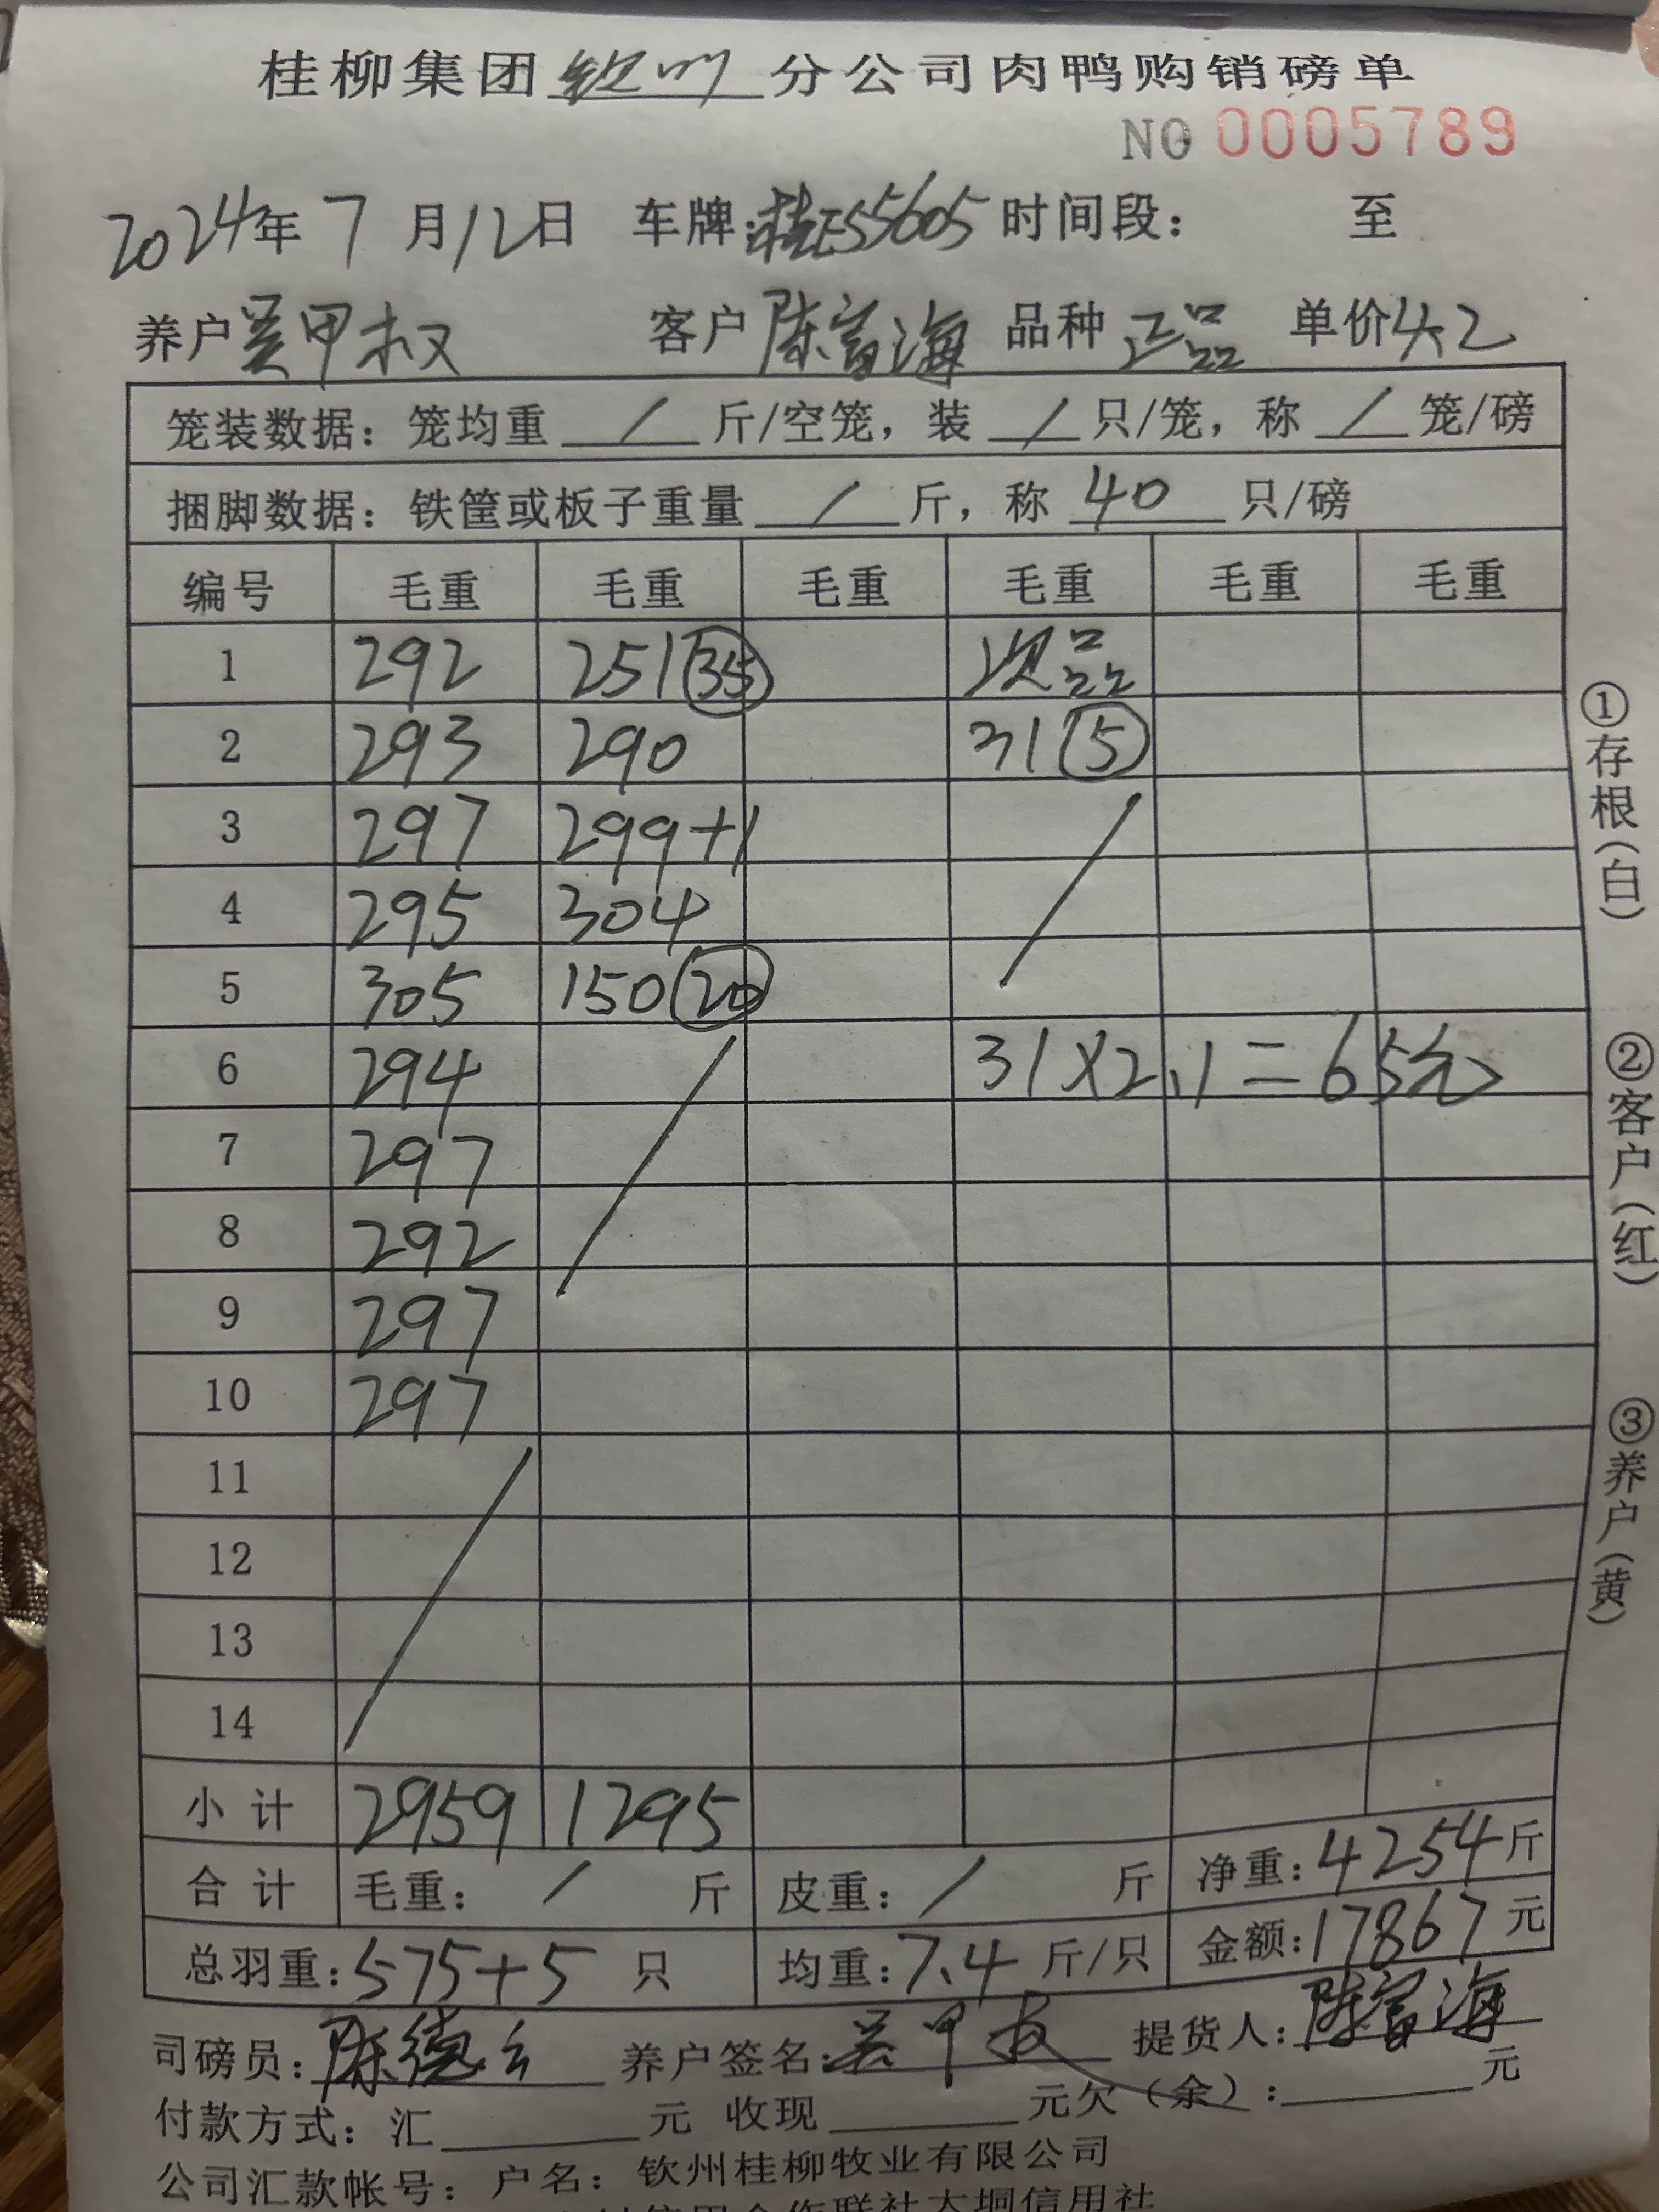 桂柳集团钦州分公司肉鸭购销磅单
NO 0005789
2024年7月12日 车牌:桂E55605 时间段: 至
养户 吴甲权 客户 陈富海 品种 正品 单价 4.2
笼装数据:笼均重 / 斤/空笼,装 / 只/笼,称 / 笼/磅
捆脚数据:铁筐或板子重量 / 斤,称 40 只/磅
编号 毛重 毛重 毛重 毛重 毛重 毛重
1 292 251(35) 次品
2 293 290 31(5)
3 297 299+1
4 295 304
5 305 150(20)
6 294 31×2.1=65元
7 297
8 292
9 297
10 297
11
12
13
14
小计 2959 1295
合计 毛重: / 斤 皮重: / 斤 净重:4254斤
总羽重:575+5 只 均重:7.4 斤/只 金额:17867元
司磅员:陈德 养户签名:吴甲权 提货人:陈富海
付款方式:汇 元 收现 元欠(余): 元
公司汇款帐号:户名:钦州桂柳牧业有限公司
信用合作联社大垌信用社
①存根(白)
②客户(红)
③养户(黄)